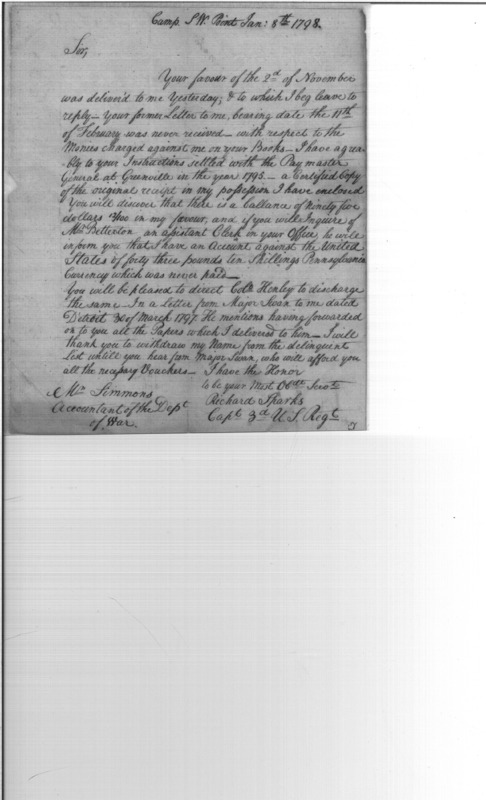 Camp S.W. Point Jan: 8th 1798.
Sir,
Your favour of the 2d of November
was deliver'd to me Yesterday; & to which I beg leave to
reply — Your former Letter to me, bearing date the 11th
of February was never received — with respect to the
Monies charged against me on your Books — I have agrea-
bly to your Instructions settled with the Pay master
General at Grenville in the year 1795 — a Certified Copy
of the original receipt in my possession I have enclosed
You will discover that there is a Ballance of Ninety five
dollars /100 in my favour, and if you will Inquire of
Mr Betterton an assistant Clerk in your Office, he will
inform you that I have an Account against the United
States of forty three pounds ten Shillings Pennsylvania
Currency which was never paid —
You will be pleased to direct Colo Henley to discharge
the same — In a letter from Major Swan to me dated
Detroit 30 of March 1797 He mentions having forwarded
on to you all the Papers which I delivered to him — I will
thank you to withdraw my Name from the delinquent
List untill you hear from Major Swan, who will afford you
all the necessary Vouchers — I have the Honor
to be your Most Obdt Servt
Mr Simmons
Accountant of the Dept
of War.
Richard Sparks
Capt 3d U S. Regt